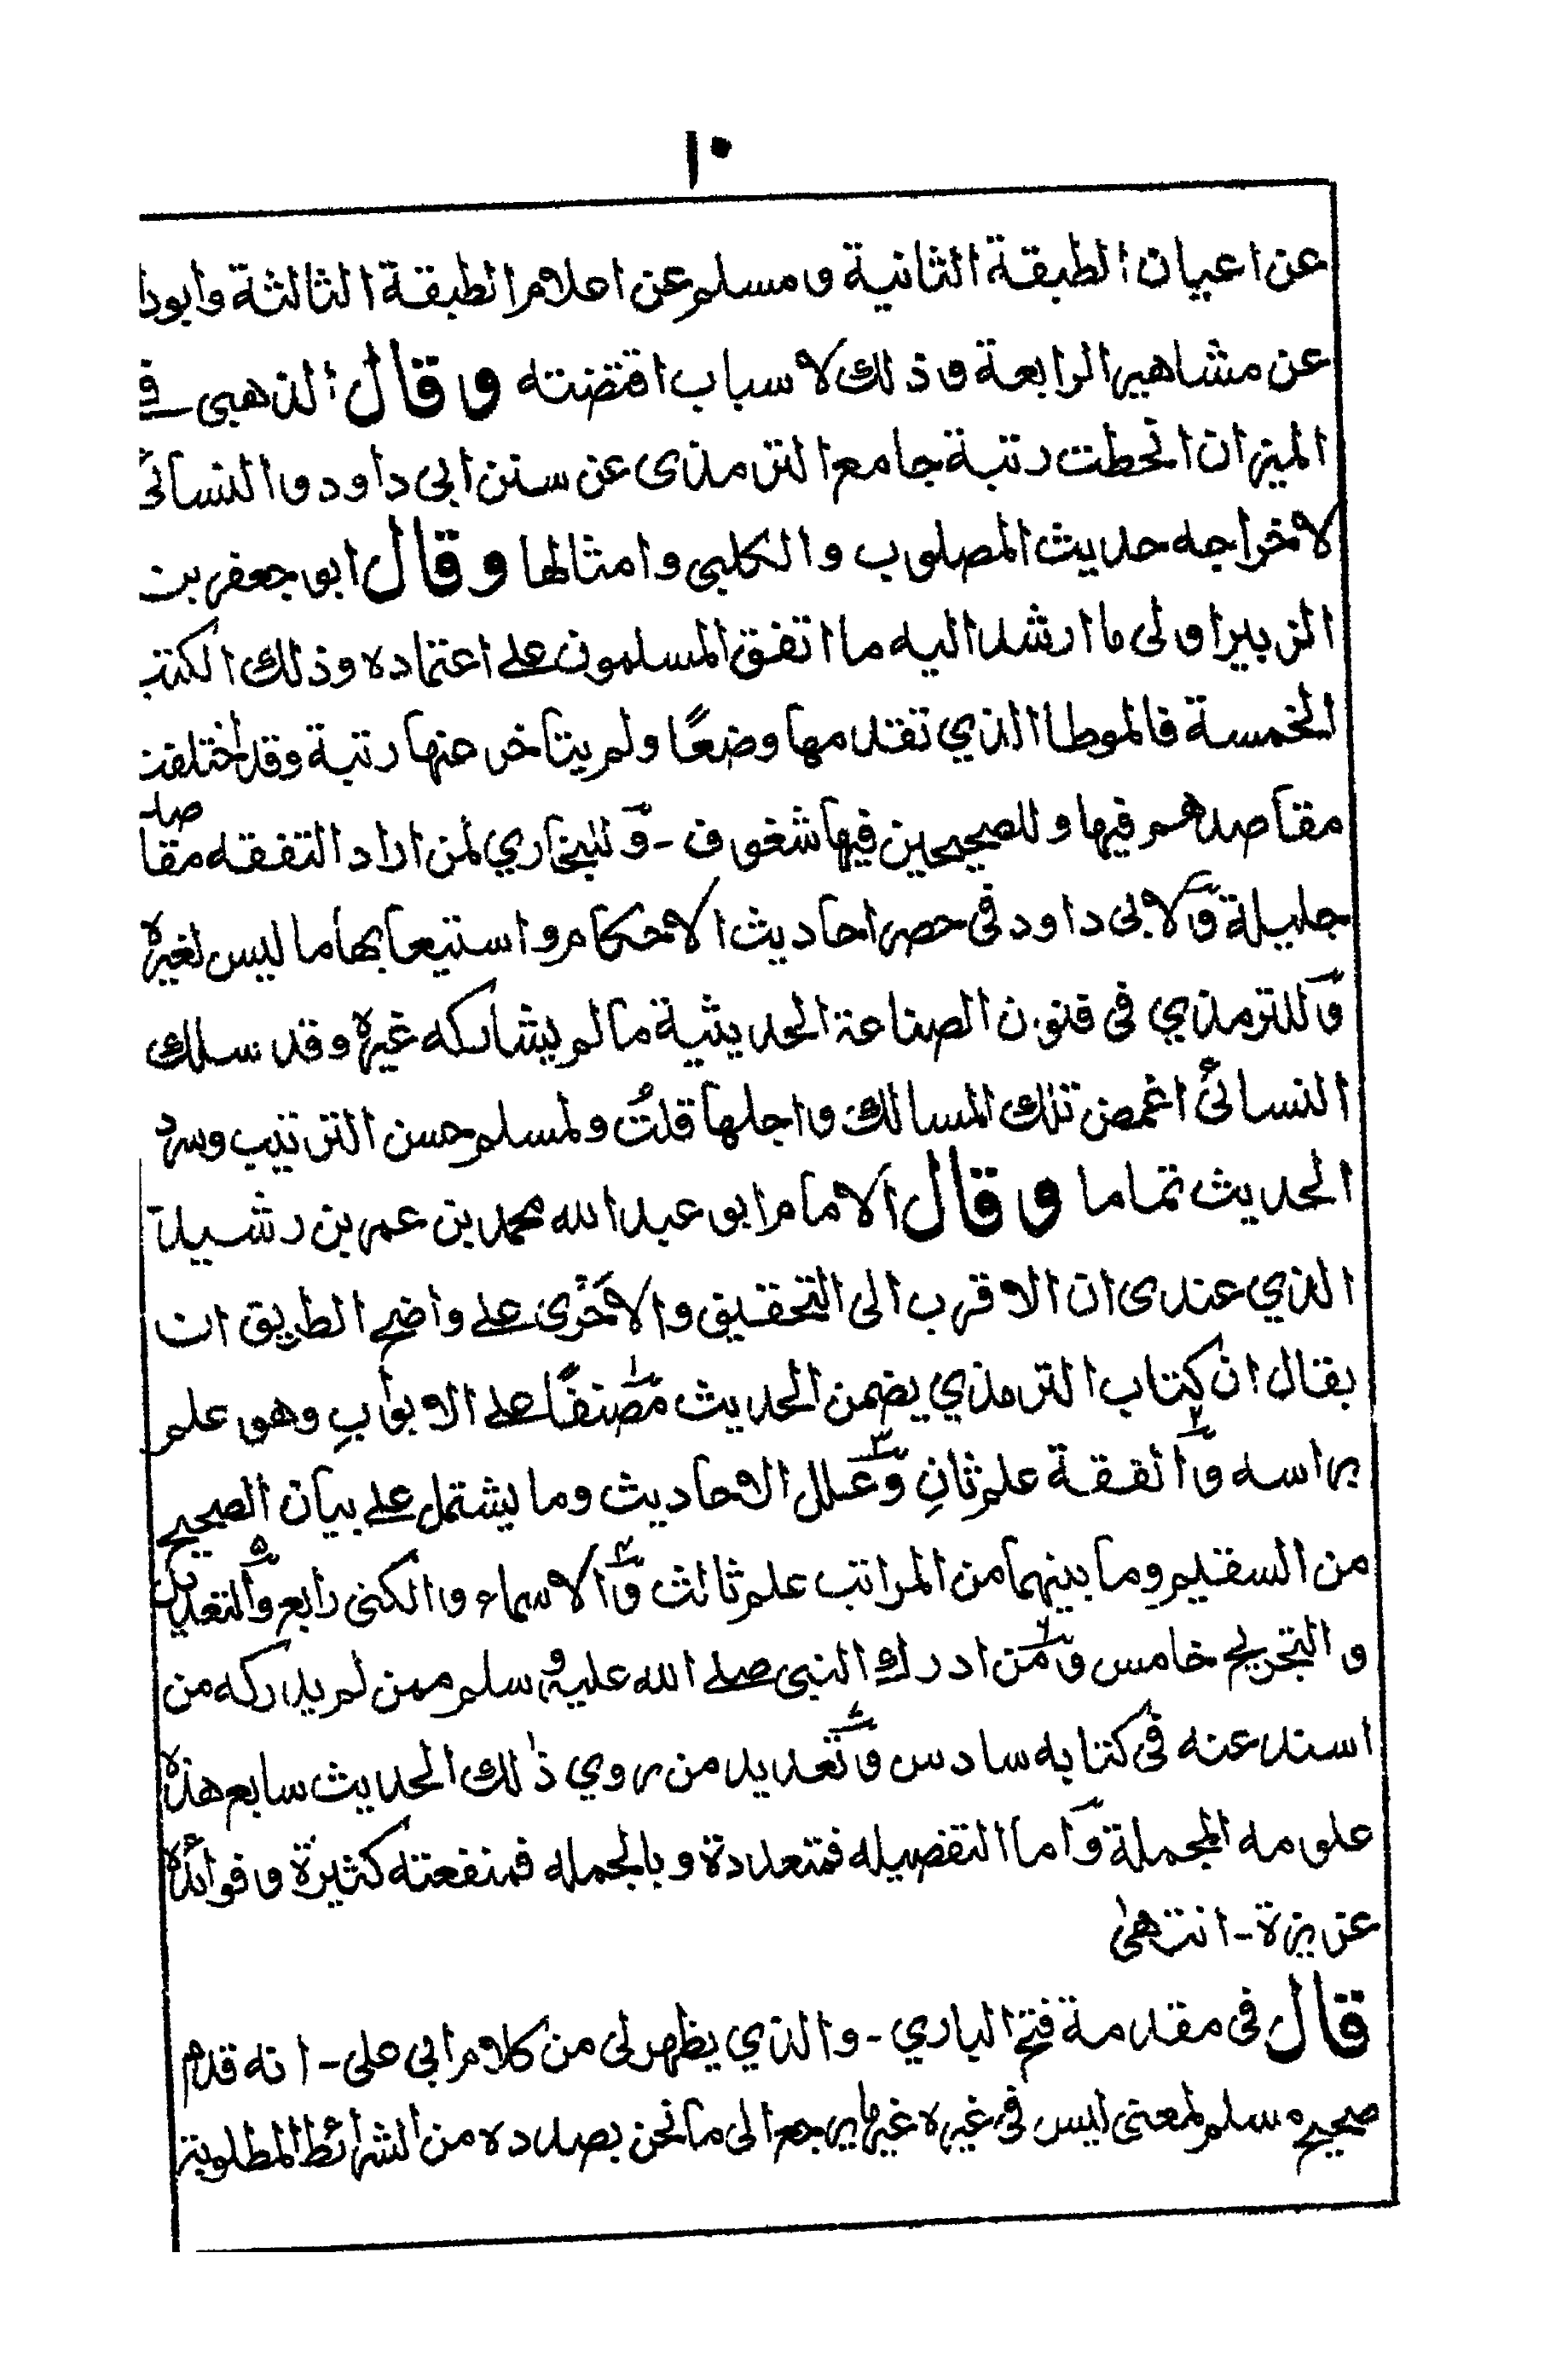 ١٠
عن اعيان الطبقة الثانية و مسلم عن اعلام الطبقة الثالثة وابودا
عن مشاهير الرابعة و ذلك لاسباب اقتضته وقال الذهبى فى
الميزان انحطت رتبة جامع الترمذى عن سنن ابى داود و النسائى
لاخراجه حديث المصلوب و الكلبى وامثالها وقال ابو جعفر بن
الزبير اولى ما ارشد اليه ما اتفق المسلمون على اعتماده وذلك الكتب
الخمسة فالموطا الذي تقدمها وضعًا ولم يتاخر عنها رتبة وقد اختلفت
مقاصدهم فيها و للصحيحين فيها شغوف - وللبخاري لمن اراد التفقه مقاصد
جليلة ولابى داود فى حصر احاديث الاحكام و استيعابها ما ليس لغيره
وللترمذي فى فنون الصناعة الحديثية ما لم يشاركه غيره وقد سلك
النسائى اغمض تلك المسالك واجلها قلتُ ولمسلم حسن الترتيب وسرد
الحديث تماما وقال الامام ابو عبد الله محمد بن عمر بن رشيد
الذي عندى ان الاقرب الى التحقيق والاحرى على واضح الطريق ان
يقال ان كتاب الترمذي يضمن الحديث مصنفًا على الابوابِ وهو علم
براسه و٢الفقة علم ثانِ و٣علل الاحاديث وما يشتمل على بيان الصحيح
من السقيم وما بينهما من المراتب علم ثالث و٤الاسماء و الكنى رابع و٥التعديل
و التجريح خامس و٦من ادرك النبى صلے الله عليه و سلم ممن لم يدركه من
اسند عنه فى كتابه سادس و تعديد من روي ذٰلك الحديث سابع هذه
علومه المجملة واما التفصيله فمتعددة و بالجمله فمنفعته كثيرة و فوائده
عزيزة - انتهىٰ
قال فى مقدمة فتح الباري - والذي يظهر لى من كلام ابي على - انه قدم
صحيح مسلم لمعنى ليس فى غيره غير ما يرجع الى ما نحن بصدده من الشرائط المطلوبة